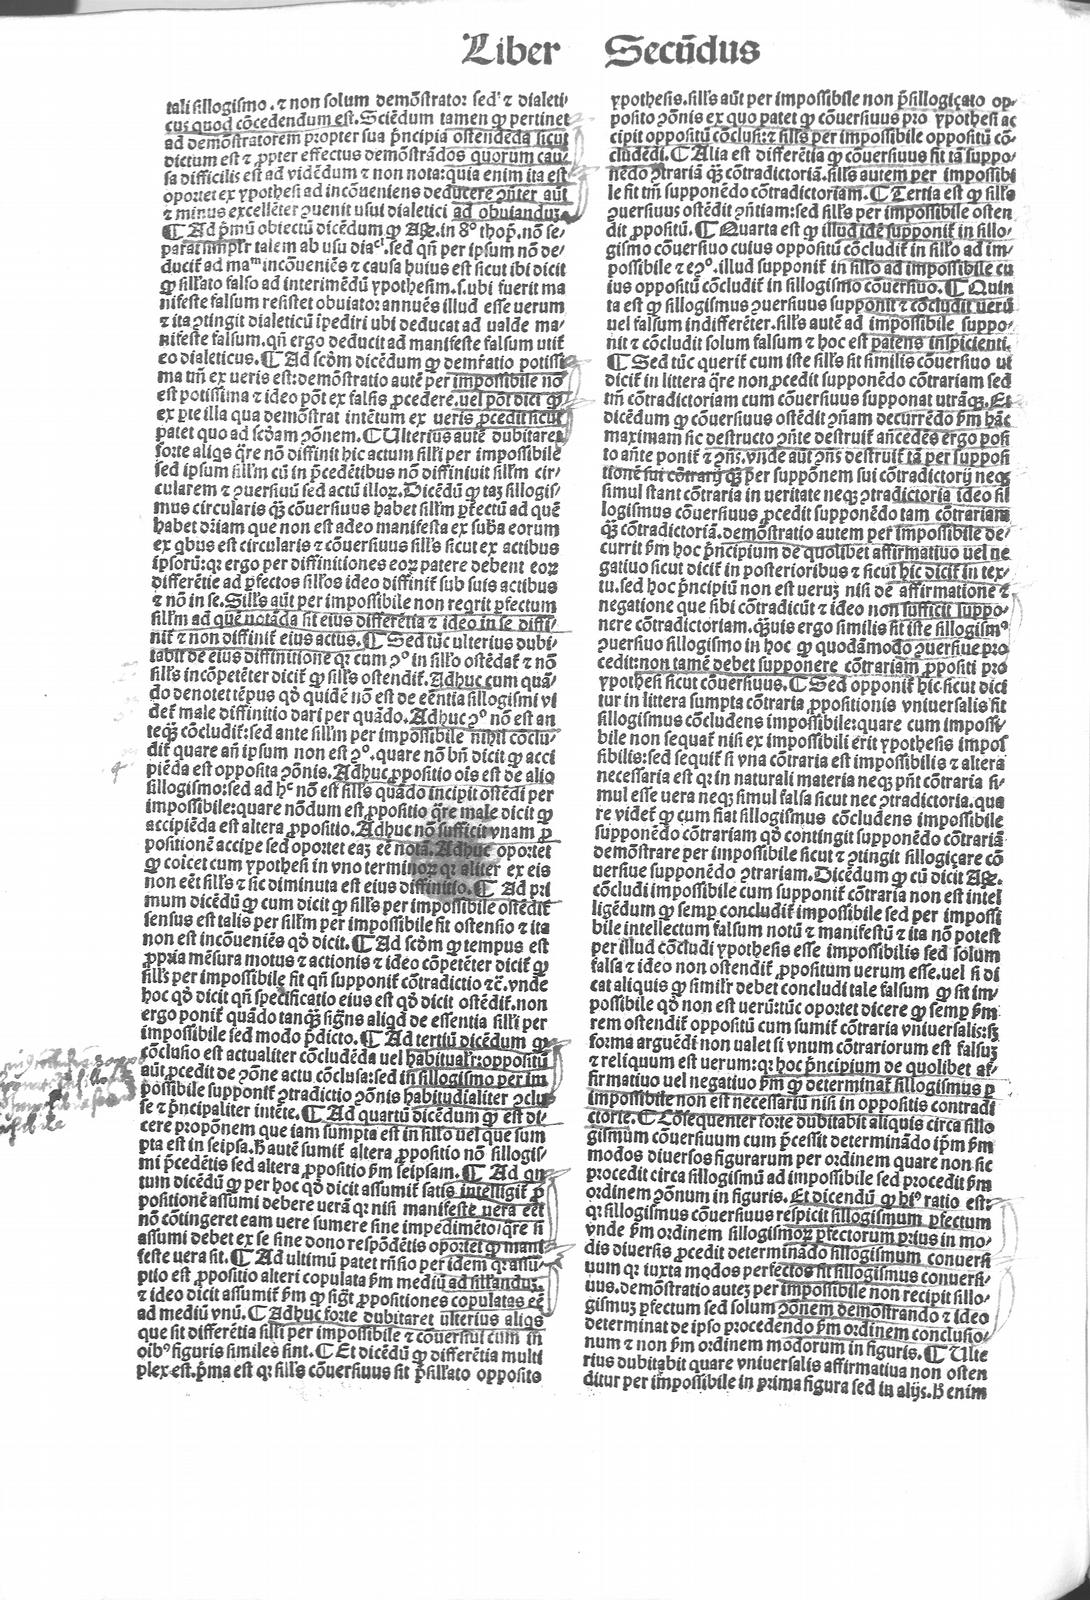 Liber Secūdus
tali sillogismo. ⁊ non solum demōstrator sed ⁊ dialeti
cus quod cōcedendum est. Sciēdum tamen ꝙ pertinet
ad demōstratorem propter sua p̄ncipia ostendēda sicut
dictum est ⁊ ꝓpter effectus demōstrādos quorum cau
sa difficilis est ad vidēdum ⁊ non nota: quia enim ita est
oportet ex ypothesi ad incōueniens deducere ꝯñter aūt
⁊ minus excellēter ꝯuenit usui dialetici ad obuianduꝫ
¶ Ad p̄mū obiectū dicēdum ꝙ in 8º thop̄. nō se
parat simplr talem ab usu sed qñ per ipsum nō de
ducit̄ ad incōueniēs ⁊ causa huius est sicut ibi dicit
ꝙ sill'ato falso ad interimēdū ypothesim. s. ubi fuerit ma
nifeste falsum resistet obuiator annuēs illud esse uerum
⁊ ita ꝯtingit dialeticū īpediri ubi deducat ad ualde ma
nifeste falsum. qñ ergo deducit ad manifeste falsum utit̄
eo dialeticus. ¶ Ad scd̄m dicēdum ꝙ potissi
ma tm̄ ex ueris est: demōstratio autē per impossibile nō
est potissima ⁊ ideo pōt ex falsis ꝓcedere. uel pōt dici ꝙ
ex ꝑte illa qua demōstrat intētum ex ueris ꝓcedit sicut
patet quo ad scd̄am ꝯōnem. ¶ Ulterius autē dubitaret
forte aliqs q̄re nō diffinit hic actum sill'i per impossibile
sed ipsum sill'm cū in p̄cedētibus nō diffiniuit sill'm cir
cularem ⁊ ꝯuersiuū sed actū illoꝝ. Dicēdū ꝙ taꝫ sillogis
mus circularis ꝙ̄ cōuersiuus habet sill'm ꝑfectū ad quē
habet dr̄iam que non est adeo manifesta ex suba eorum
ex qbus est circularis ⁊ cōuersiuus sill's sicut ex actibus
ipsorū: qꝛ ergo per diffinitiones eoꝝ patere debent eoꝝ
differētie ad ꝑfectos sill'os ideo diffinit̄ sub suis actibus
⁊ nō in se. Sill's aūt per impossibile non reqrit ꝑfectum
sill'm ad quē notāda sit eius differētia ⁊ ideo in se diffi
nit̄ ⁊ non diffinit̄ eius actus. ¶ Sed tūc ulterius dubi
tabit̄ de eius diffinitione qꝛ cum ꝯº in sill'o ostēdat̄ ⁊ nō
sill's incōpetēter dicit̄ ꝙ sill's ostendit̄. Adhuc cum quā
do denotet tēpus qd̄ quidē nō est de eēntia sillogismi vi
det̄ male diffinitio dari per quādo. Adhuc ꝯº nō est an
teqꝫ cōcludit̄: sed ante sill'm per impossibile nihil cōclu
dit̄ quare añ ipsum non est ꝯº. quare nō bñ dicit ꝙ acci
piēda est opposita ꝯōnis. Adhuc ꝓpositio oīs est de alio
sillogismo: sed ad hᶜ nō est sill's quādo incipit ostēdi per
impossibile: quare nōdum est ꝓpositio q̄re male dicit ꝙ
accipiēda est altera ꝓpositio. Adhuc nō sufficit vnam ꝓ
positionē accipe sed oportet eaꝫ eē notā. Adhuc oportet
ꝙ coīcet cum ypothesi in vno terminoꝝ qꝛ aliter ex eis
non eēt sill's ⁊ sic diminuta est eius diffinitio. ¶ Ad pri
mum dicēdū ꝙ cum dicit ꝙ sill's per impossibile ostēdit̄
sensus est talis per sill'm per impossibile fit ostensio ⁊ ita
non est incōueniēs qd̄ dicit. ¶ Ad scd̄m ꝙ tempus est
ꝓpria mēsura motus ⁊ actionis ⁊ ideo cōpetēter dicit̄ ꝙ
sill's per impossibile fit qñ supponit̄ contradictio ⁊c̄. vnde
hoc qd̄ dicit qñ specificatio eius est qd̄ dicit ostēdit̄. non
ergo ponit̄ quādo tanqꝫ signs aliqd de essentia sill'i per
impossibile sed modo p̄dicto. ¶ Ad tertiū dicēdum ꝙ
cōclusio est actualiter cōcludēda uel habitualr: oppositū
aūt ꝓcedit de ꝯōne actu cōclusa: sed in sillogismo per im
possibile supponit̄ ꝯtradictio ꝯōnis habitudialiter ꝯclu
se ⁊ p̄ncipaliter intēte. ¶ Ad quartū dicēdum ꝙ est di
cere propōnem que iam sumpta est in sill'o uel que sum
pta est in seipsa. H̄ autē sumit̄ altera ꝓpositio nō sillogis
mi p̄cedētis sed altera ꝓpositio ẜm seipsam. ¶ Ad qn
tum dicēdū ꝙ per hoc qd̄ dicit assumit̄ satis intelligit̄ ꝓ
positionē assumi debere uerā qꝛ nisi manifeste uera eēt
nō cōtingeret eam uere sumere sine impedimēto: q̄re si
assumi debet ex se sine dono respōdētis oportet ꝙ mani
feste uera sit. ¶ Ad ultimū patet rn̄sio per idem qꝛ assu
ptio est ꝓpositio alteri copulata ẜm mediū ad sill'anduꝫ.
⁊ ideo dicit assumit̄ ẜm ꝙ sigt̄ ꝓpositiones copulatas eē
ad mediū vnū. ¶ Adhuc forte dubitaret ulterius aliqs
que sit differētia sill'i per impossibile ⁊ cōuersiui cum in
oībꝰ figuris similes sint. ¶ Et dicēdū ꝙ differētia multi
plex est. p̄ma est qꝛ sill's cōuersiuus fit p̄sill'ato opposito
ypothesis. sill's aūt per impossibile non p̄sillogiçato op
posito ꝯōnis ex quo patet ꝙ cōuersiuus pro ypothesi ac
cipit oppositū cōclusi: ⁊ sill's per impossibile oppositū cō
cludēdi. ¶ Alia est differētia ꝙ cōuersiuus fit tā suppo
nēdo ꝯtrariā qꝫ cōtradictoriā. sill's autem per impossibi
le fit tm̄ supponēdo cōtradictoriam. ¶ Tertia est ꝙ sill's
ꝯuersiuus ostēdit ꝯñtiam: sed sill's per impossibile osten
dit ꝓpositū. ¶ Quarta est ꝙ illud idē supponit̄ in sillo
gismo cōuersiuo cuius oppositū cōcludit̄ in sill'o ad im
possibile ⁊ eꝯº. illud supponit̄ in sill'o ad impossibile cu
ius oppositū cōcludit̄ in sillogismo cōuersiuo. ¶ Quin
ta est ꝙ sillogismus ꝯuersiuus supponit ⁊ cōcludit uerū
uel falsum indifferēter. sill's autē ad impossibile suppo
nit ⁊ cōcludit solum falsum ⁊ hoc est patens inspicienti.
¶ Sed tūc querit̄ cum iste sill's sit similis cōuersiuo ut
dicit̄ in littera q̄re non ꝓcedit supponēdo cōtrariam sed
tm̄ cōtradictoriam cum cōuersiuus supponat utrāqꝫ. Et
dicēdum ꝙ cōuersiuus ostēdit ꝯñam decurrēdo ẜm hāc
maximam sic destructo ꝯñte destruit̄ añcedēs ergo posi
to añte ponit̄ ⁊ ꝯñs. vnde aūt ꝯñs destruit̄ tā per supposi
tionē sui cōtrarij ꝙ̄ per supponem sui cōtradictorij neqꝫ
simul stant cōtraria in ueritate neqꝫ ꝯtradictoria ideo sil
logismus cōuersiuus ꝓcedit supponēdo tam cōtrariam
ꝙ̄ cōtradictoriā. demōstratio autem per impossibile de
currit ẜm hoc p̄ncipium de quolibet affirmatiuo uel ne
gatiuo sicut dicit̄ in posterioribus ⁊ sicut hic dicit̄ in tex
tu. sed hoc p̄ncipiū non est ueruꝫ nisi de affirmatione ⁊
negatione que sibi cōtradicūt ⁊ ideo non sufficit suppo
nere cōtradictoriam. ꝙ̄uis ergo similis sit iste sillogismꝰ
ꝯuersiuo sillogismo in hoc ꝙ quodāmodo ꝯuersiue pro
cedit: non tamē debet supponere cōtrariam ꝓpositi pro
ypothesi sicut cōuersiuus. ¶ Sed opponit̄ hic sicut dici
tur in littera sumpta cōtraria ꝓpositionis vniuersalis fit
sillogismus cōcludens impossibile: quare cum impossi
bile non sequat̄ nisi ex impossibili erit ypothesis impos
sibilis: sed sequit̄ si vna cōtraria est impossibilis ⁊ altera
necessaria est qꝛ in naturali materia neqꝫ pn̄t cōtraria si
mul esse uera neqꝫ simul falsa sicut nec ꝯtradictoria. qua
re videt̄ ꝙ cum fiat sillogismus cōcludens impossibile
supponēdo cōtrariam qd̄ contingit supponēdo cōtrariā
demōstrare per impossibile sicut ⁊ ꝯtingit sillogiçare cō
uersiue supponēdo ꝯtrariam. Dicēdum ꝙ cū dicit
cōcludi impossibile cum supponit̄ cōtraria non est intel
ligēdum ꝙ semꝑ concludit̄ impossibile sed per impossi
bile intellectum falsum notū ⁊ manifestū ⁊ ita nō potest
per illud cōcludi ypothesis esse impossibilis sed solum
falsa ⁊ ideo non ostendit̄ ꝓpositum uerum esse. uel si di
cat aliquis ꝙ similr debet concludi tale falsum ꝙ sit im
possibile qd̄ non est uerū: tūc oportet dicere ꝙ semꝑ ẜm
rem ostendit̄ oppositū cum sumit̄ cōtraria vniuersalis: sꝫ
forma arguēdi non ualet si vnum cōtrariorum est falsuꝫ
⁊ reliquum est uerum: qꝛ hoc p̄ncipium de quolibet af
firmatiuo uel negatiuo ẜm ꝙ determinat̄ sillogismus ꝑ
impossibile non est necessariū nisi in oppositis contradi
ctorie. ¶ Cōsequenter forte dubitabit aliquis circa sillo
gismum cōuersiuum cum p̄cessit determinādo ip̄m ẜm
modos diuersos figurarum per ordinem quare non sic
procedit circa sillogismū ad impossibile sed procedit ẜm
ordinem ꝯōnum in figuris. Et dicendū ꝙ hiꝰ ratio est:
qꝛ sillogismus cōuersiuus respicit sillogismum ꝑfectum
vnde ẜm ordinem sillogismoꝝ ꝑfectorum prius in mo
dis diuersis ꝓcedit determinādo sillogismum conuersi
uum qꝛ iuxta modos perfectos fit sillogismus conuersi
uus. demōstratio auteꝫ per impossibile non recipit sillo
gismuꝫ ꝑfectum sed solum ꝯōnem demōstrando ⁊ ideo
determinat de ipso procedendo ẜm ordinem conclusio
num ⁊ non ẜm ordinem modorum in figuris. ¶ Ulte
rius dubitabit̄ quare vniuersalis affirmatiua non osten
ditur per impossibile in prima figura sed in alijs. H̄ enim